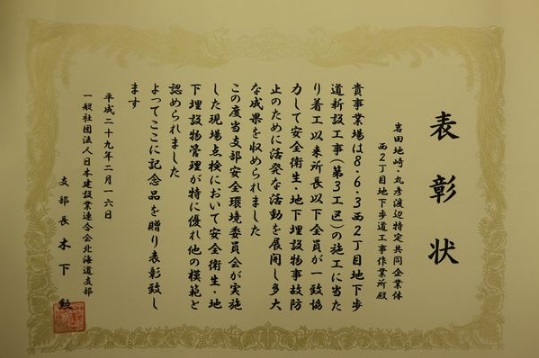 表彰状
岩田地崎・丸彦渡辺特定共同企業体
西2丁目地下歩道工事作業所殿
貴事業場は8・6・3西2丁目地下歩
道新設工事(第3工区)の施工に当た
り着工以来所長以下全員が一致協
力して安全衛生・地下埋設物事故防
止のために活発な活動を展開し多大
な成果を収められました
この度当支部安全環境委員会が実施
した現場点検において安全衛生・地
下埋設物管理が特に優れ他の模範と
認められました
よってここに記念品を贈り表彰致し
ます
平成二十九年二月一六日
一般社団法人日本建設業連合会北海道支部
支部長 木下 勲